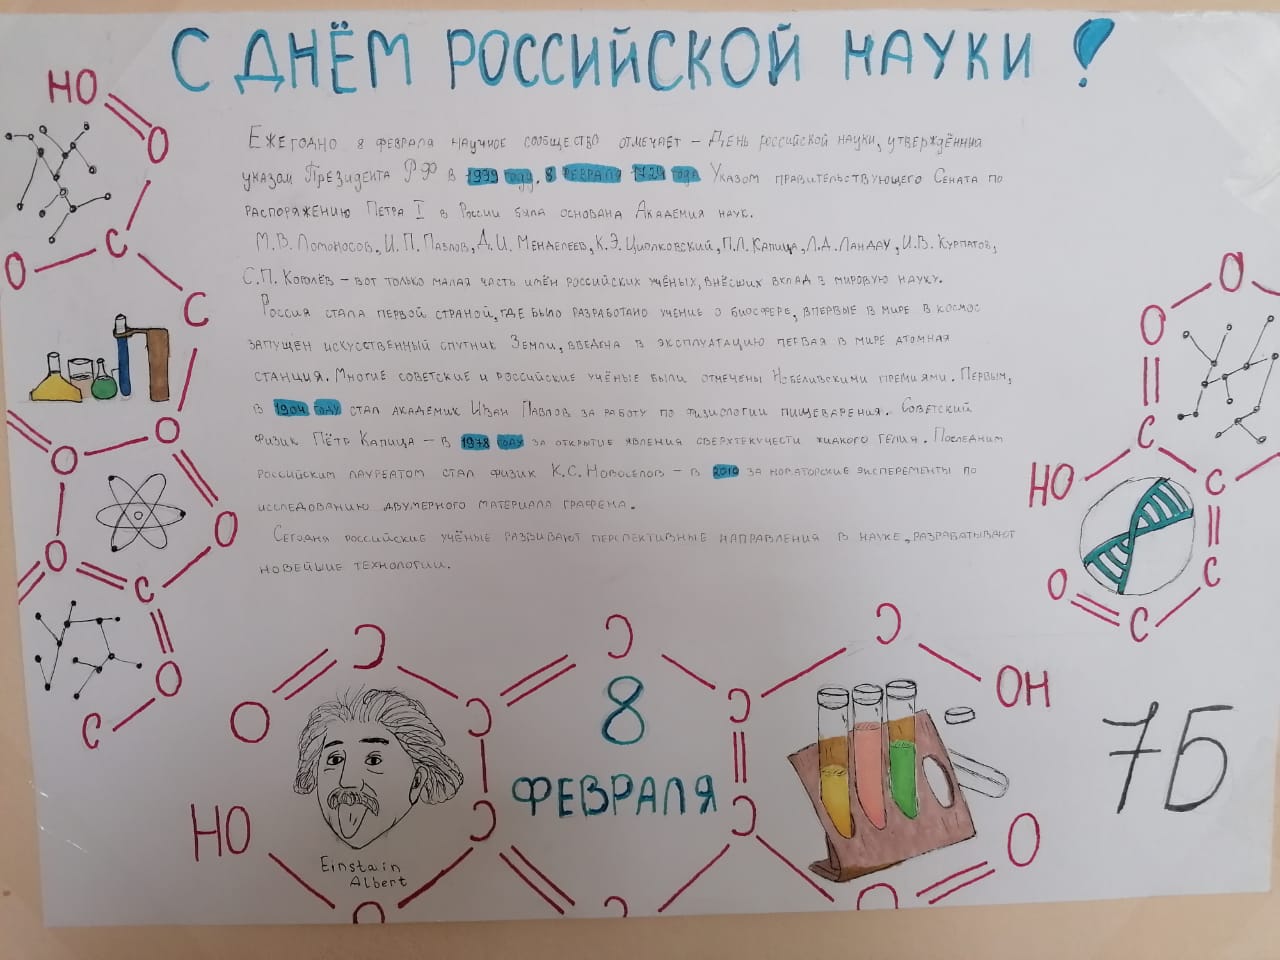 С ДНЁМ РОССИЙСКОЙ НАУКИ!
Ежегодно 8 февраля научное сообщество отмечает – День российской науки, утверждённий
указом Президента РФ в 1999 году. 8 февраля 1724 года Указом правительствующего Сената по
распоряжению Петра I в России была основана Академия наук.
М.В. Ломоносов, И.П. Павлов, Д.И. Менделеев, К.Э. Циолковский, П.Л. Капица, Л.Д. Ландау, И.В. Курпатов,
С.П. Королёв – вот только малая часть имён российских учёных, внёсших вклад в мировую науку.
Россия стала первой страной, где было разработано учение о биосфере, впервые в мире в космос
запущен искусственный спутник Земли, введена в эксплуатацию первая в мире атомная
станция. Многие советские и российские учёные были отмечены Нобеливскими премиями. Первым,
в 1904 году стал академик Иван Павлов за работу по физиологии пищеварения. Советский
физик Пётр Капица – в 1978 году за открытие явления сверхтекучести жидкого гелия. Последним
российским лауреатом стал физик К.С. Новоселов – в 2010 за новаторские эксперементы по
исследованию двумерного материала графена.
Сегодня российские учёные развивают перспективные направления в науке, разрабатывают
новейшие технологии.
HO
O
C
O
C
O
O
O
O
C
O
C
O
O
O
C
HO
C
C
O
C
C
C
C
C
C
O
C
C
OH
8
ФЕВРАЛЯ
7Б
HO
C
C
O
Einstain
Albert